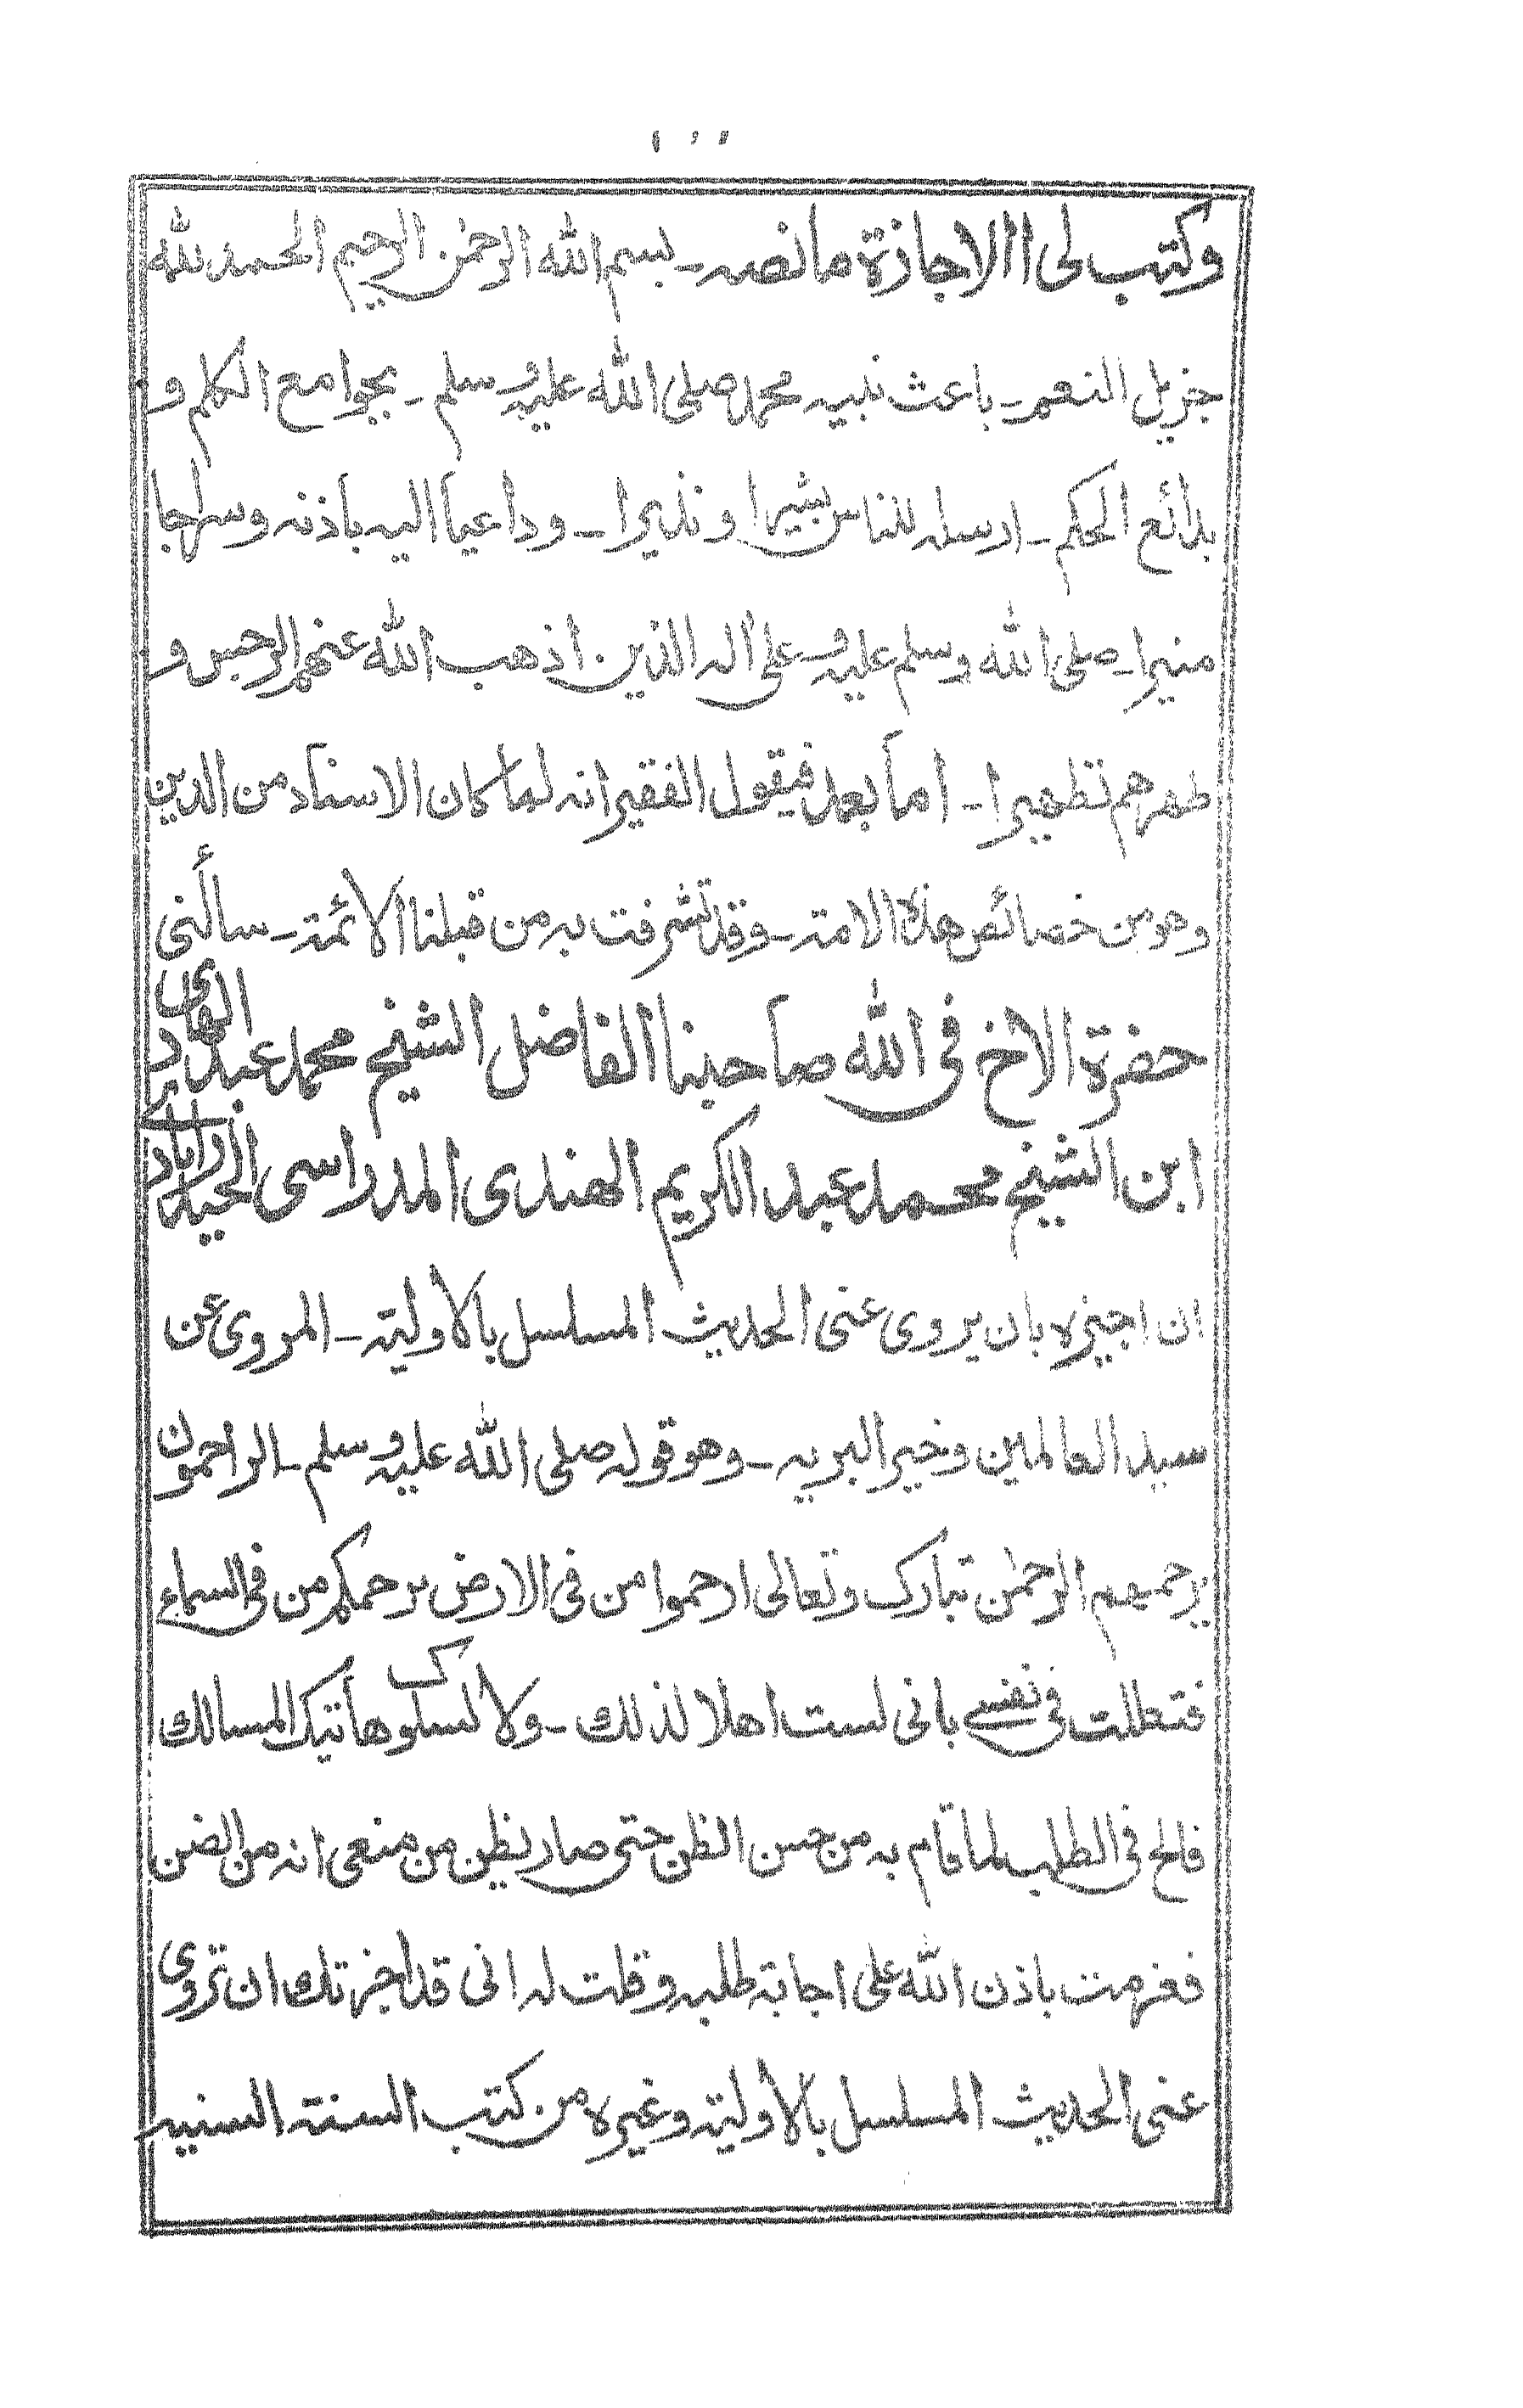 وكتب لى االاجازة مانصه ـ بسم الله الرحمن الرحيم الحمد لله
جزيل النعم ـ باعث نبيه محمد صلى الله عليه وسلم ـ بجوامع الكلم و
بدائع الحكم ـ ارسله للناس بشيرا ونذيرا ـ وداعيا اليه باذنه وسراجا
منيرا ـ صلى الله وسلم عليه وعلى اله الذين اذهب الله عنهم الرجس و
طهرهم تطهيرا ـ اما بعد فيقول الفقير انه لما كان الاسناد من الدين
وهو من خصائص هذه الامته ـ وقد تشرفت به من قبلنا الأئمته ـ سألنى
حضرة الاخ فى الله صاحبنا الفاضل الشيخ محمد عبد الهادى
ابن الشيخ محمد عبد الكريم الهندى المدراسى الحيدرابادى
ان اجيزه بان يروى عنى الحديث المسلسل بالأوليته ـ المروى عن
سيد العالمين وخير البريه ـ وهو قوله صلى الله عليه وسلم ـ الراحمون
يرحمهم الرحمن تبارك وتعالى ارحموا من فى الارض يرحمكم من فى السماء
فتعللت فى نفسى بانى لست اهلا لذلك ـ ولا لسلوك هاتيك المسالك
فالح فى الطلب لما قام به من حسن الظن حتى صار يظن من منعى انه من الضن
فعزمت باذن الله على اجابة طلبه وقلت له انى قد اجزتك ان تروى
عنى الحديث المسلسل بالأوليته وغيره من كتب السنته السنيه